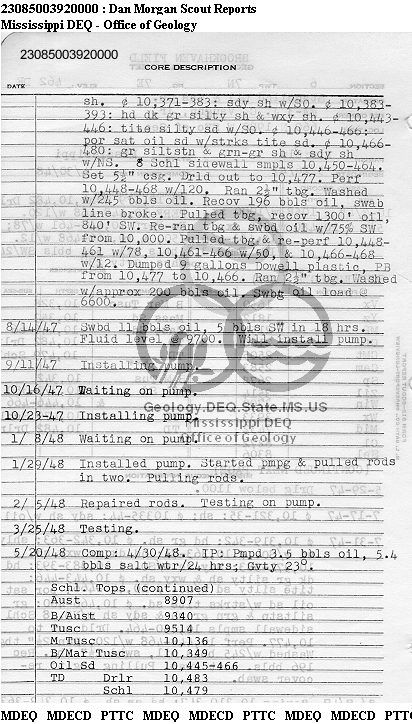 23085003920000 : Dan Morgan Scout Reports
Mississippi DEQ - Office of Geology
23085003920000
CORE DESCRIPTION
DATE
sh. ¢ 10,371-383: sdy sh w/SO. ¢ 10,383-
393: hd dk gr silty sh & wxy sh. ¢ 10,443-
446: tite silty sd w/SO. ¢ 10,446-466:
por sat oil sd w/strks tite sd. ¢ 10,466-
480: gr siltstn & grn-gr sh & sdy sh
w/NS. 8 Schl sidewall smpls 10,450-464.
Set 5½" csg. Drld out to 10,477. Perf
10,448-468 w/120. Ran 2½" tbg. Washed
w/245 bbls oil. Recov 196 bbls oil, swab
line broke. Pulled tbg, recov 1300' oil,
840' SW. Re-ran tbg & swbd oil w/75% SW
from 10,000. Pulled tbg & re-perf 10,448-
461 w/78, 10,461-466 w/50, & 10,466-468
w/12. Dumped 9 gallons Dowell plastic, PB
from 10,477 to 10,466. Ran 2½" tbg. Washed
w/approx 200 bbls oil. Swbg oil load @
6600.
8/14/47 Swbd 11 bbls oil, 5 bbls SW in 18 hrs.
Fluid level @ 9700. Will install pump.
9/11/47 Installing pump.
10/16/47 Waiting on pump.
10/23-47 Installing pump.
Geology.DEQ.State.MS.US
Mississippi DEQ
1/ 8/48 Waiting on pump.
Office of Geology
1/29/48 Installed pump. Started pmpg & pulled rods
in two. Pulling rods.
2/ 5/48 Repaired rods. Testing on pump.
3/25/48 Testing.
5/20/48 Comp: 4/30/48. IP: Pmpd 3.5 bbls oil, 5.4
bbls salt wtr/24 hrs; Gvty 23°.
Schl. Tops (continued)
Aust 8907
B/Aust 9340
Tusc 9514
M Tusc 10,136
B/Mar Tusc 10,349
Oil Sd 10,445-466
TD Drlr 10,483
Schl 10,479
MDEQ MDECD PTTC MDEQ MDECD PTTC MDEQ MDECD PTTC MDEQ